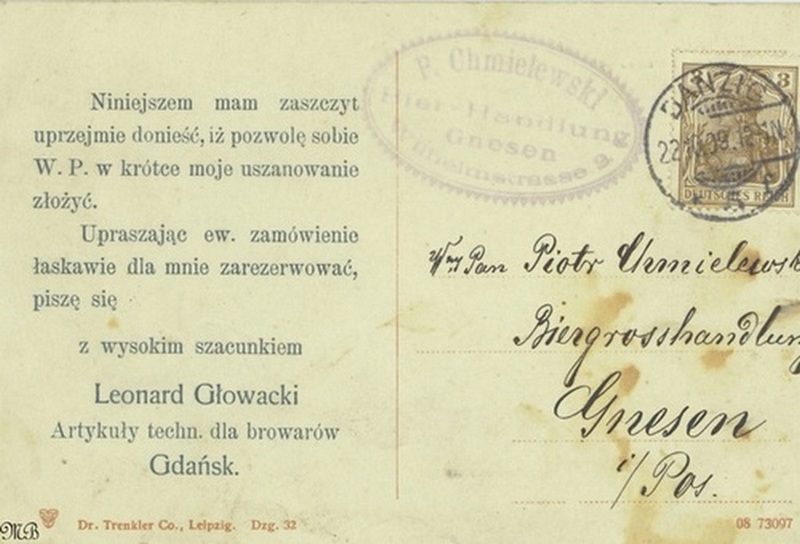 Niniejszem mam zaszczyt
uprzejmie donieść, iż pozwolę sobie
W. P. w krótce moje uszanowanie
złożyć.
Upraszając ew. zamówienie
łaskawie dla mnie zarezerwować,
piszę się
z wysokim szacunkiem
Leonard Głowacki
Artykuły techn. dla browarów
Gdańsk.
MB
Dr. Trenkler Co., Leipzig. Dzg. 32
P. Chmielewski
Bier-Handlung
Gnesen
Wilhelmstrasse 9.
DANZIG
3
DEUTSCHES REICH
Pan Piotr Chmielewsk
Biergrosshandlun
Gnesen
i/Pos.
08 73097